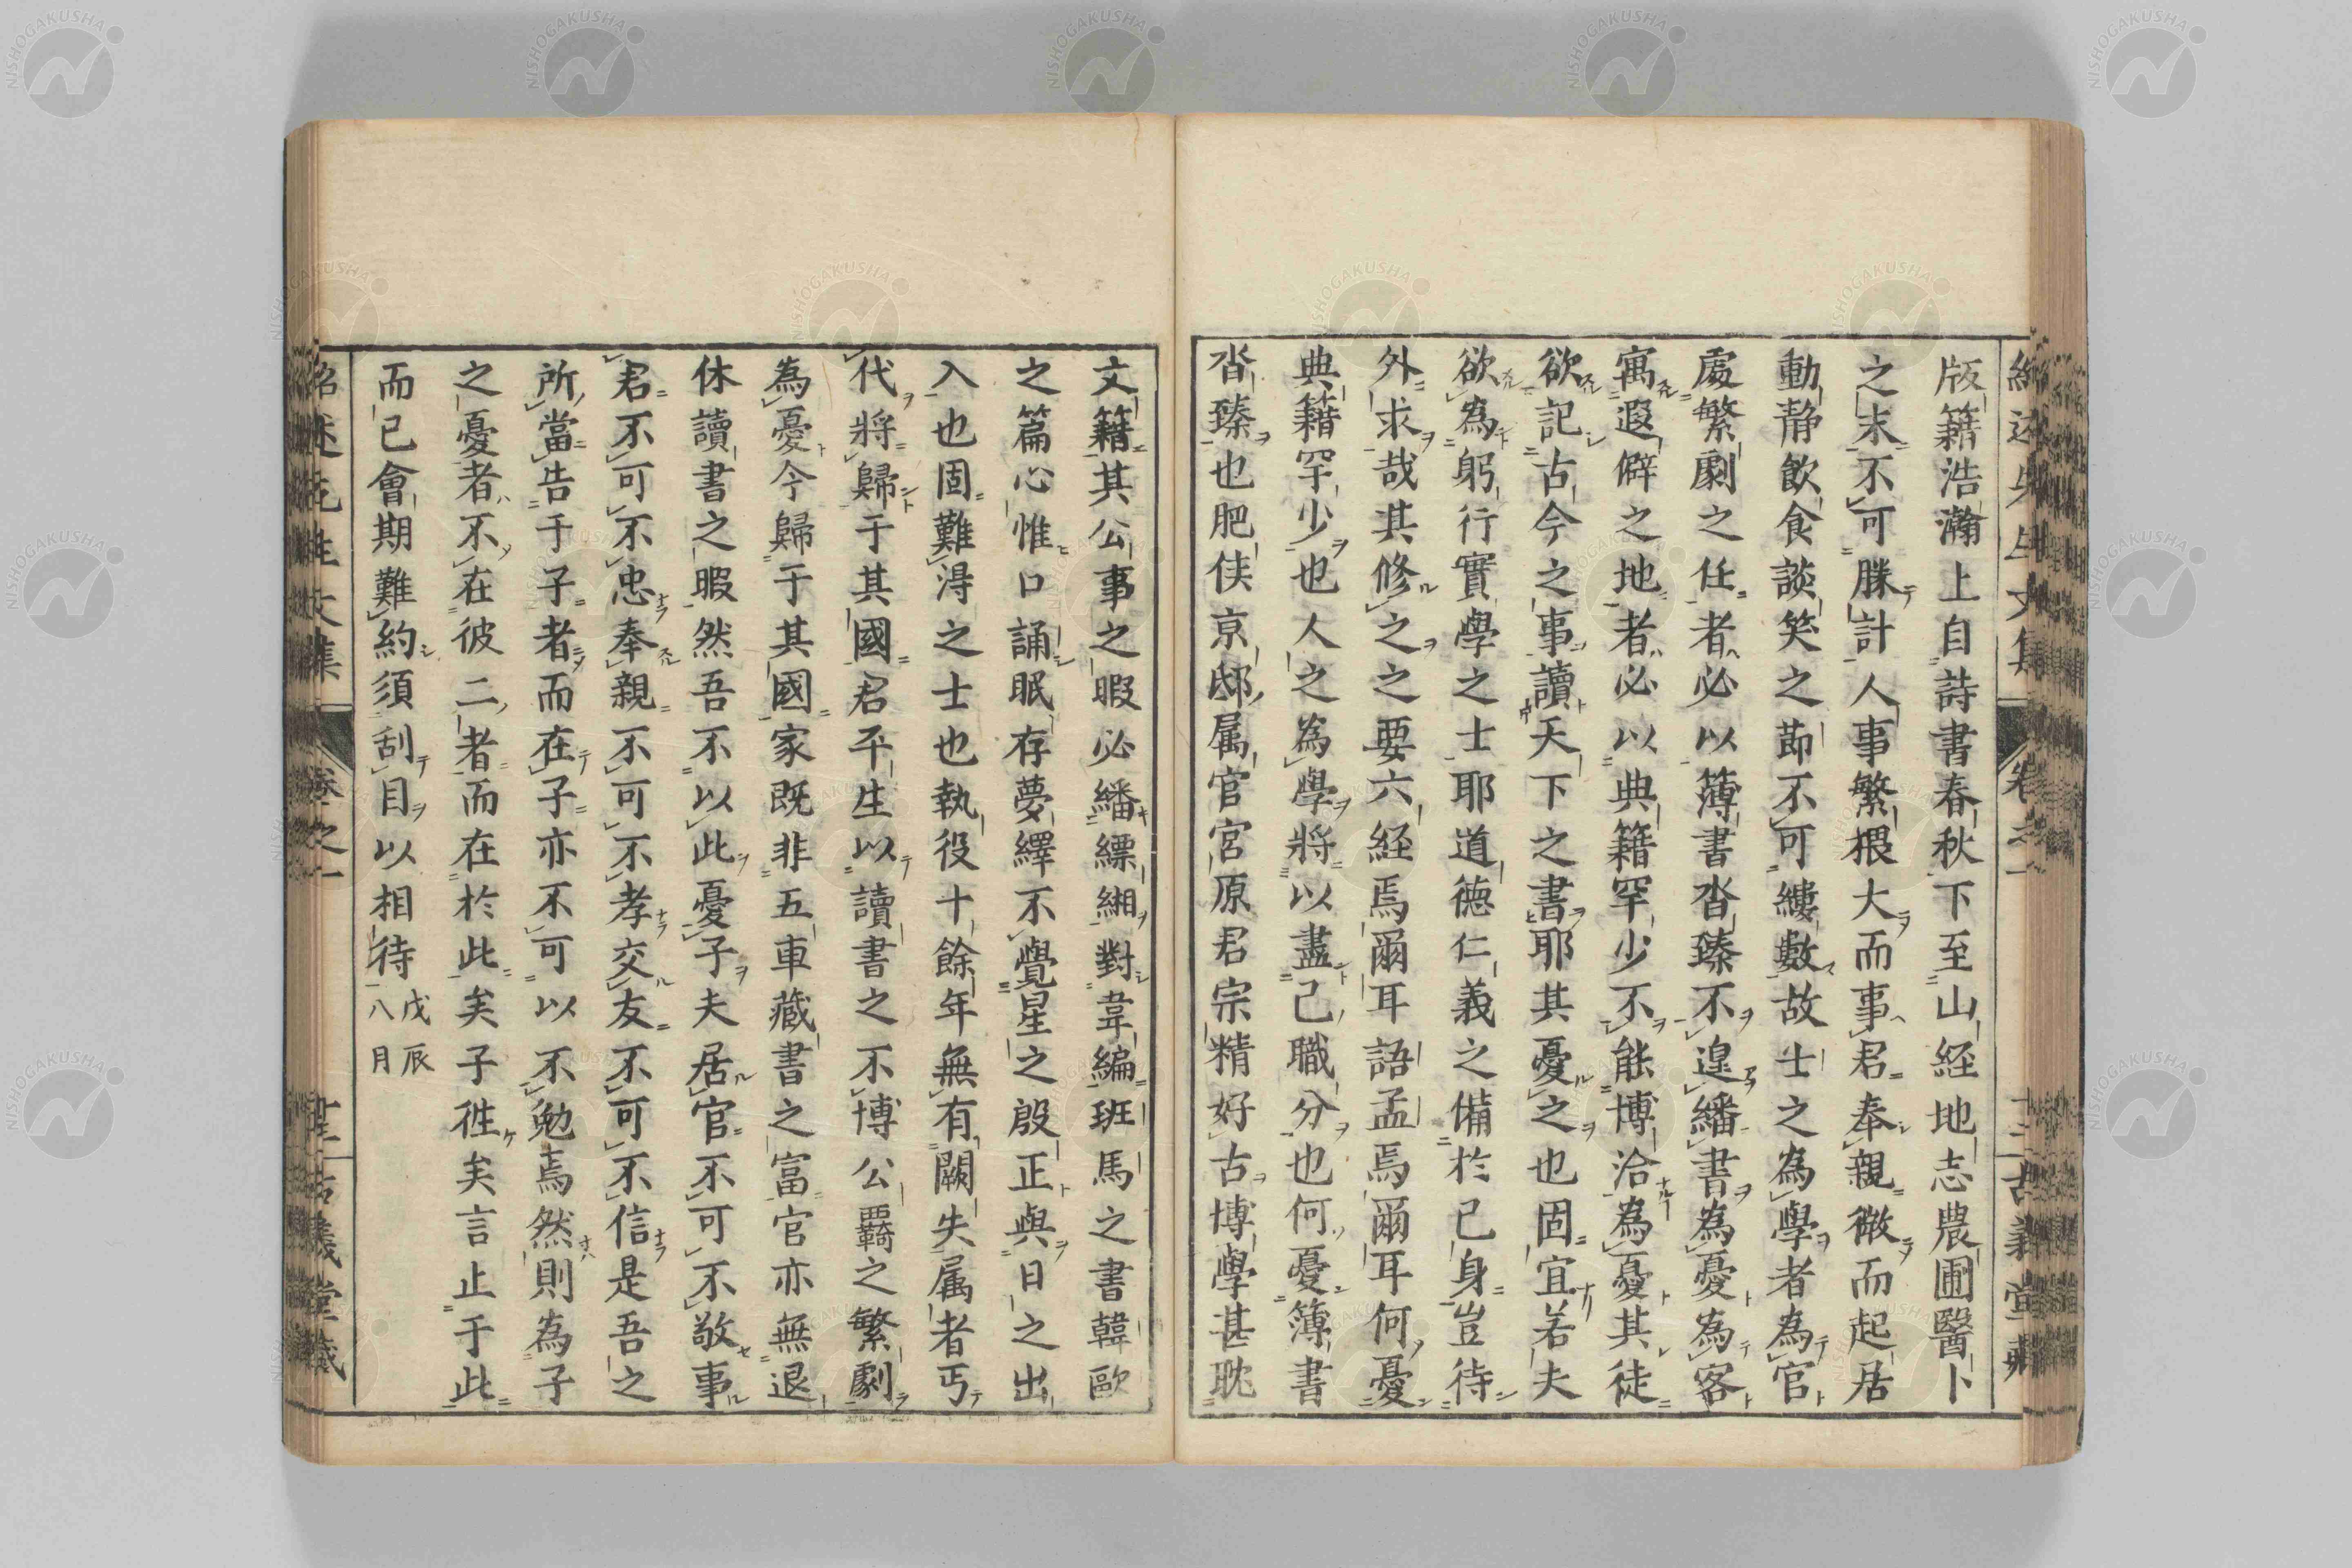 版籍浩瀚上自詩書春秋下至山経地志農圃醫卜
之末不可勝計人事繁猥大而事君奉親微而起居
動静飲食談笑之節不可縷數故士之為學者為官
處繁劇之任者必以簿書沓臻不遑繙書為憂為客
寓遐僻之地者必以典籍罕少不能博洽為憂其徒
欲記古今之事讀天下之書耶其憂之也固宜若夫
欲為躬行實學之士耶道徳仁義之備於己身豈待
外求哉其修之之要六経焉爾耳語孟焉爾耳何憂
典籍罕少也人之為學將以盡己職分也何憂簿書
沓臻也肥侯京邸属官宮原君宗精好古博學甚耽
文籍其公事之暇必繙縹緗對韋編班馬之書韓歐
之篇心惟口誦眠存夢繹不覺星之殷正與日之出
入也固難淂之士也執役十餘年無有闕失属者丐
代將歸于其國君平生以讀書之不博公覊之繁劇
為憂今歸于其國家既非五車藏書之富官亦無退
休讀書之暇然吾不以此憂子夫居官不可不敬事
君不可不忠奉親不可不孝交友不可不信是吾之
所當告于子者而在子亦不可以不勉焉然則為子
之憂者不在彼二者而在於此矣子徃矣言止于此
而已會期難約須刮目以相待 戊辰八月
紹述先生文集 卷之一 古義堂藏